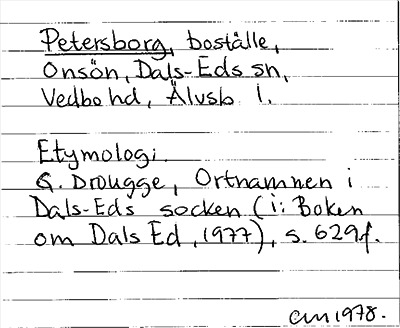 Petersborg, boställe,
Onsön, Dals-Eds sn,
Vedbo hd, Älvsb l.
Etymologi
G. Drougge, Ortnamnen i
Dals-Eds socken (i: Boken
om Dals Ed, 1977), s. 629f.
cm 1978.